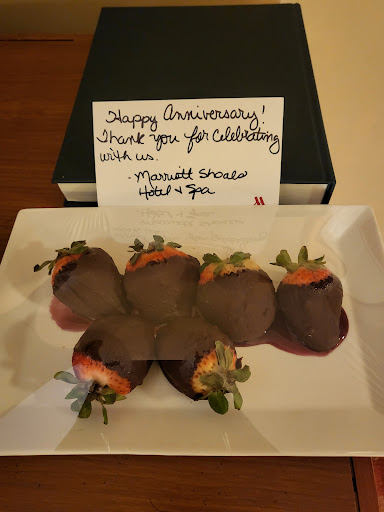 Happy Anniversary!
Thank you for Celebrating
with us.
- Marriott Shoals
Hotel & Spa